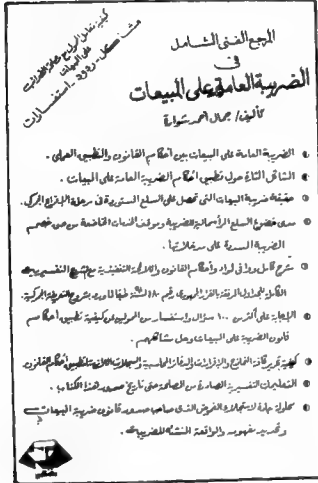 كيفية تعامل الممولين مع مصلحة الضرائب
على المبيعات
مشاكل - ردود - استفسارات
المرجع الفنى الشامل
فى
الضريبة العامة على المبيعات
تأليف / جمال أحمد شوارة
الضريبة العامة على المبيعات بين أحكام القانون والتطبيق العملى .
المشاكل المثارة حول تطبيق أحكام الضريبة العامة على المبيعات .
حقيقة ضريبة المبيعات التى تحصل على السلع المستوردة فى مرحلة الإفراج الجمركى .
مدى خضوع السلع الرأسمالية للضريبة وموقف الخدمات الخاضعة من حق خصم
الضريبة المسددة على مدخلاتها .
شرح كامل ووافى لمواد وأحكام القانون واللائحة التنفيذية مع شرح التفسيرات
الكاملة للجداول المرفقة بالقرار الجمهورى رقم ١٨٠ لسنة طبقا لما ورد بشروح التعريفة الجمركية .
الإجابة على أكثر من ١٠٠ سؤال واستفسار من الممولين عن كيفية تطبيق أحكام
قانون الضريبة على المبيعات وحل مشاكلهم .
كيفية تحرير كافة النماذج والإقرارات والدفاتر المحاسبية والسجلات اللازمة لتطبيق أحكام القانون
التعليمات التفسيرية الصادرة من المصلحة حتى تاريخ صدور هذا الكتاب .
محاولة جادة لاستجلاء الغموض الذى صاحب صدور قانون ضريبة المبيعات
وتحديد مفهومه والواقعة المنشئة للضريبة .